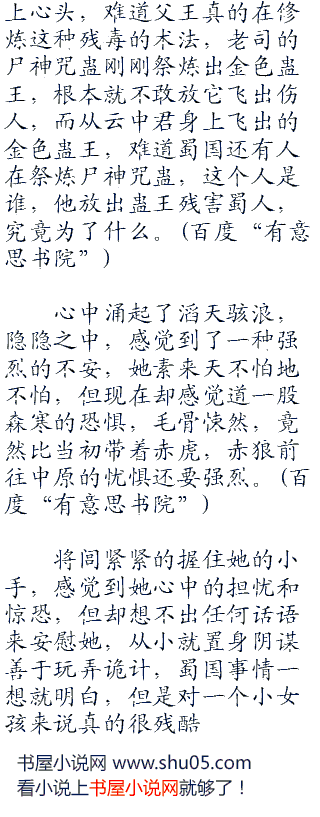 上心头，难道父王真的在修
炼这种残毒的术法，老司的
尸神咒蛊刚刚祭炼出金色蛊
王，根本就不敢放它飞出伤
人，而从云中君身上飞出的
金色蛊王，难道蜀国还有人
在祭炼尸神咒蛊，这个人是
谁，他放出蛊王残害蜀人，
究竟为了什么。(百度“有意
思书院”)
心中涌起了滔天骇浪，
隐隐之中，感觉到了一种强
烈的不安，她素来天不怕地
不怕，但现在却感觉道一股
森寒的恐惧，毛骨悚然，竟
然比当初带着赤虎，赤狼前
往中原的忧惧还要强烈。(百
度“有意思书院”)
将闾紧紧的握住她的小
手，感觉到她心中的担忧和
惊恐，但却想不出任何话语
来安慰她，从小就置身阴谋
善于玩弄诡计，蜀国事情一
想就明白，但是对一个小女
孩来说真的很残酷
书屋小说网 www.shu05.com
看小说上书屋小说网就够了！